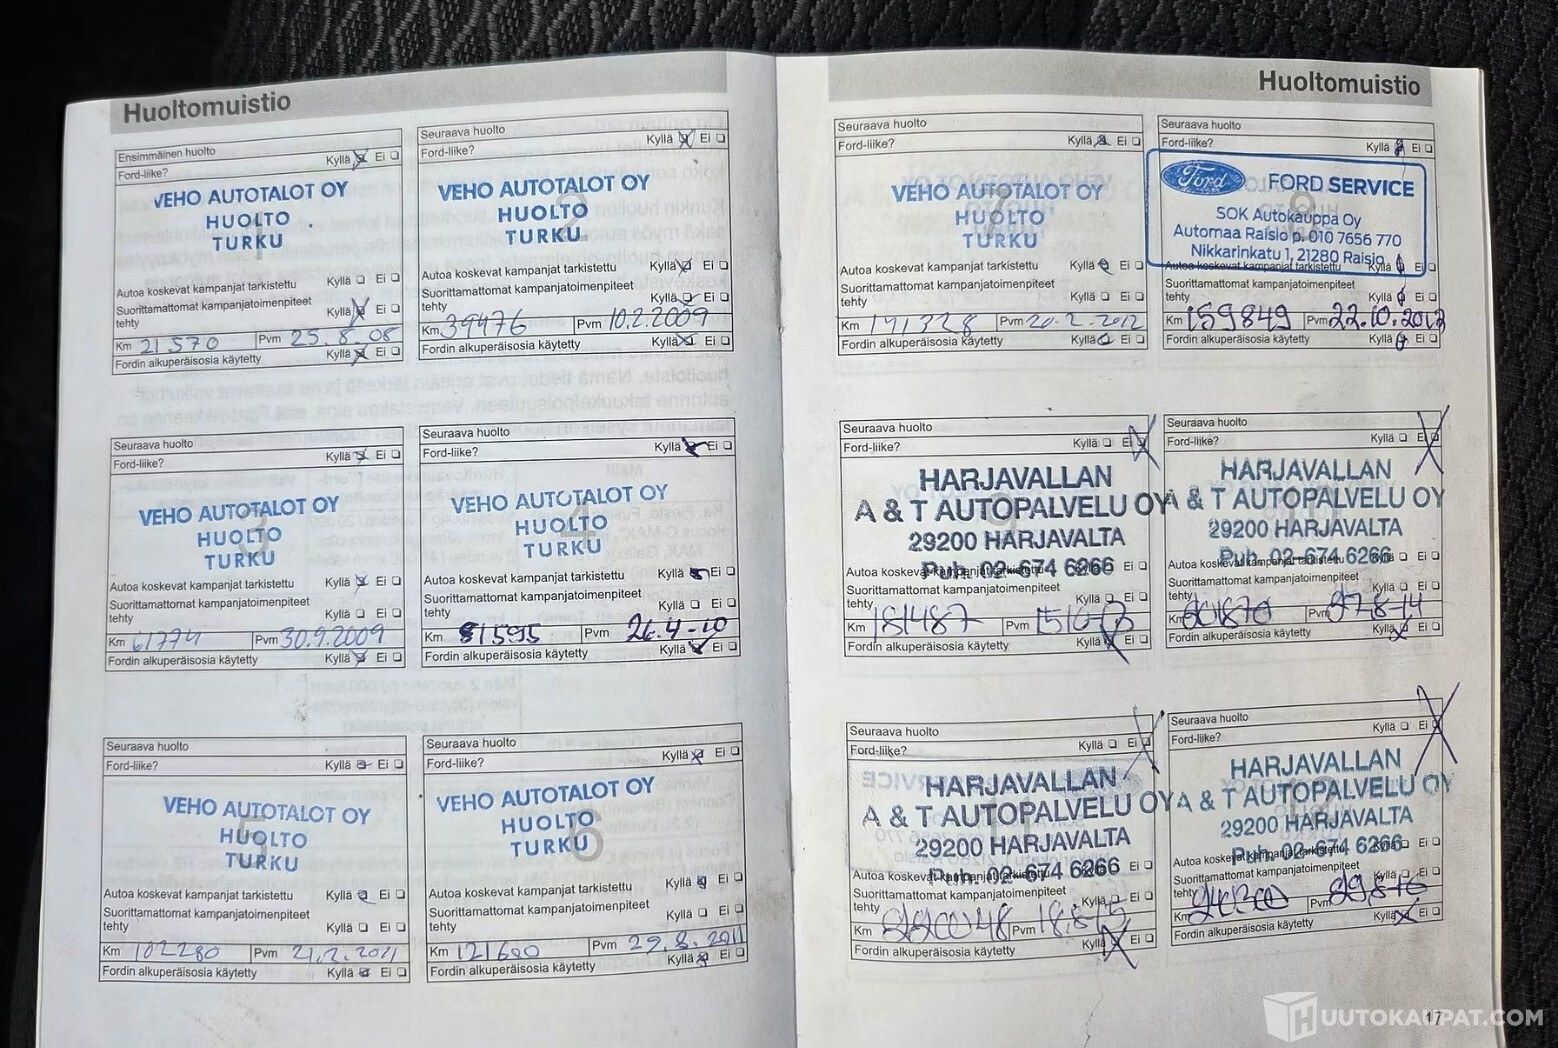 Huoltomuistio
Ensimmäinen huolto
Ford-liike? Kyllä Ei
VEHO AUTOTALOT OY
HUOLTO
TURKU
Autoa koskevat kampanjat tarkistettu Kyllä Ei
Suorittamattomat kampanjatoimenpiteet
tehty Kyllä Ei
Km 21 570 Pvm 25.8.08
Fordin alkuperäisosia käytetty Kyllä Ei
Seuraava huolto
Ford-liike? Kyllä Ei
VEHO AUTOTALOT OY
HUOLTO
TURKU
Autoa koskevat kampanjat tarkistettu Kyllä Ei
Suorittamattomat kampanjatoimenpiteet
tehty Kyllä Ei
Km 39476 Pvm 10.2.2009
Fordin alkuperäisosia käytetty Kyllä Ei
Seuraava huolto
Ford-liike? Kyllä Ei
3
VEHO AUTOTALOT OY
HUOLTO
TURKU
Autoa koskevat kampanjat tarkistettu Kyllä Ei
Suorittamattomat kampanjatoimenpiteet
tehty Kyllä Ei
Km 61774 Pvm 30.9.2009
Fordin alkuperäisosia käytetty Kyllä Ei
Seuraava huolto
Ford-liike? Kyllä Ei
4
VEHO AUTOTALOT OY
HUOLTO
TURKU
Autoa koskevat kampanjat tarkistettu Kyllä Ei
Suorittamattomat kampanjatoimenpiteet
tehty Kyllä Ei
Km 81595 Pvm 26.4-10
Fordin alkuperäisosia käytetty Kyllä Ei
Seuraava huolto
Ford-liike? Kyllä Ei
5
VEHO AUTOTALOT OY
HUOLTO
TURKU
Autoa koskevat kampanjat tarkistettu Kyllä Ei
Suorittamattomat kampanjatoimenpiteet
tehty Kyllä Ei
Km 102280 Pvm 21.2.2011
Fordin alkuperäisosia käytetty Kyllä Ei
Seuraava huolto
Ford-liike? Kyllä Ei
6
VEHO AUTOTALOT OY
HUOLTO
TURKU
Autoa koskevat kampanjat tarkistettu Kyllä Ei
Suorittamattomat kampanjatoimenpiteet
tehty Kyllä Ei
Km 121600 Pvm 29.8.2011
Fordin alkuperäisosia käytetty Kyllä Ei
Huoltomuistio
Seuraava huolto
Ford-liike? Kyllä Ei
7
VEHO AUTOTALOT OY
HUOLTO
TURKU
Autoa koskevat kampanjat tarkistettu Kyllä Ei
Suorittamattomat kampanjatoimenpiteet
tehty Kyllä Ei
Km 141328 Pvm 20.2.2012
Fordin alkuperäisosia käytetty Kyllä Ei
Seuraava huolto
Ford-liike? Kyllä Ei
8
Ford FORD SERVICE
SOK Autokauppa Oy
Automaa Raisio p. 010 7656 770
Nikkarinkatu 1, 21280 Raisio
Autoa koskevat kampanjat tarkistettu Kyllä Ei
Suorittamattomat kampanjatoimenpiteet
tehty Kyllä Ei
Km 159849 Pvm 22.10.2012
Fordin alkuperäisosia käytetty Kyllä Ei
Seuraava huolto
Ford-liike? Kyllä Ei
HARJAVALLAN
A & T AUTOPALVELU OY
29200 HARJAVALTA
Puh. 02-674 6266
Autoa koskevat kampanjat tarkistettu Kyllä Ei
Suorittamattomat kampanjatoimenpiteet
tehty Kyllä Ei
Km 181487 Pvm
Fordin alkuperäisosia käytetty Kyllä Ei
Seuraava huolto
Ford-liike? Kyllä Ei
HARJAVALLAN
A & T AUTOPALVELU OY
29200 HARJAVALTA
Puh. 02-674 6266
Autoa koskevat kampanjat tarkistettu Kyllä Ei
Suorittamattomat kampanjatoimenpiteet
tehty Kyllä Ei
Km Pvm
Fordin alkuperäisosia käytetty Kyllä Ei
Seuraava huolto
Ford-liike? Kyllä Ei
HARJAVALLAN
A & T AUTOPALVELU OY
29200 HARJAVALTA
Puh. 02-674 6266
Autoa koskevat kampanjat tarkistettu Ei
Suorittamattomat kampanjatoimenpiteet
tehty Kyllä Ei
Km Pvm 18.8-15
Fordin alkuperäisosia käytetty Kyllä Ei
Seuraava huolto
Ford-liike? Kyllä Ei
HARJAVALLAN
A & T AUTOPALVELU OY
29200 HARJAVALTA
Puh. 02-674 6266
Autoa koskevat kampanjat tarkistettu Ei
Suorittamattomat kampanjatoimenpiteet
tehty Kyllä Ei
Km Pvm
Fordin alkuperäisosia käytetty Kyllä Ei
17
HUUTOKAUPAT.COM